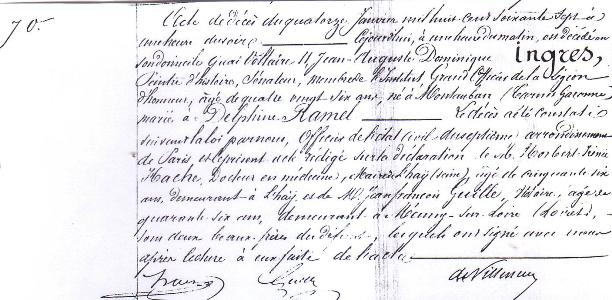 70.
L'Acte de décès du quatorze Janvier mil huit cent soixante sept à
une heure du soir Cejourd'hui, à une heure du matin, est décédé en
son domicile Quai Voltaire 11 Jean-Auguste Dominique Ingres,
Peintre d'histoire, Sénateur, Membre de l'Institut, Grand Officier de la Légion
d'honneur, âgé de quatre vingt six ans, né à Montauban (Tarn et Garonne)
marié à Delphine Ramel Le décès a été constaté
suivant la loi par nous, Officier de l'état civil du septième arrondissement
de Paris et le présent acte rédigé sur la déclaration de M. Norbert
Hache, Docteur en médecine, Maire à L'hay (Seine), âgé de cinquante six
ans, demeurant à L'hay, et de Mr Jean françois Guille, Notaire, âgé de
quarante six ans, demeurant à Meung-sur-Loire (Loiret),
tous deux beaux-frères du défunt, lesquels ont signé avec nous
après lecture à eux faite de l'acte
Guille de Villeneuve